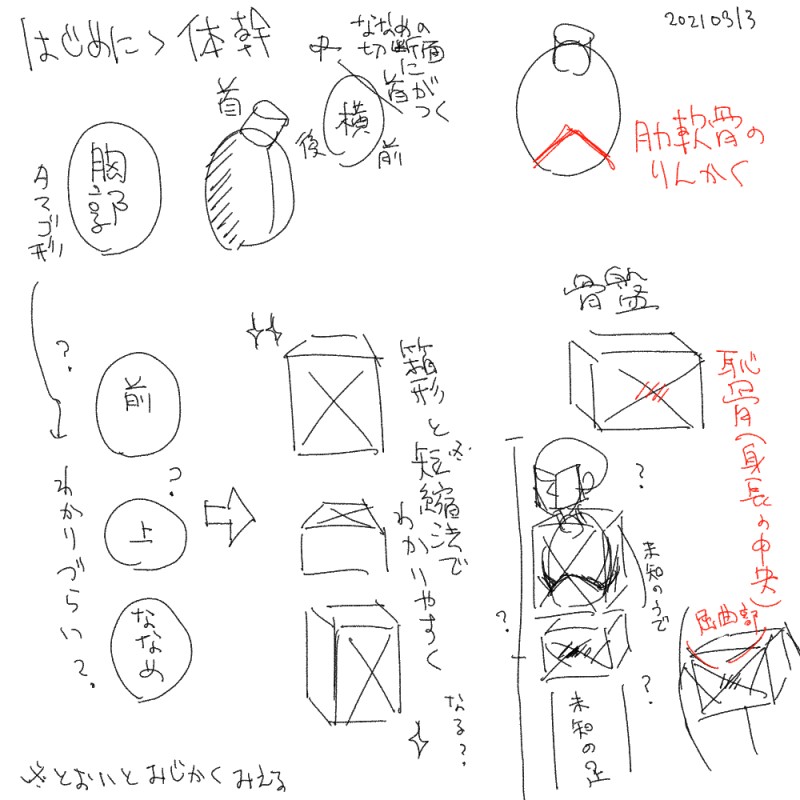 はじめに〉体幹
20210313
ななめの
切断面
に
首が
つく
中
首
横
後
前
胸部
タマゴ形
肋軟骨の
りんかく
？
前
？
上
ななめ
わかりづらい？
箱形と※短縮法で
わかりやすく
なる？
骨盤
恥骨(身長の中央)
？
未知のうで
？
？
未知の足
屈曲部
※とおいとみじかくみえる